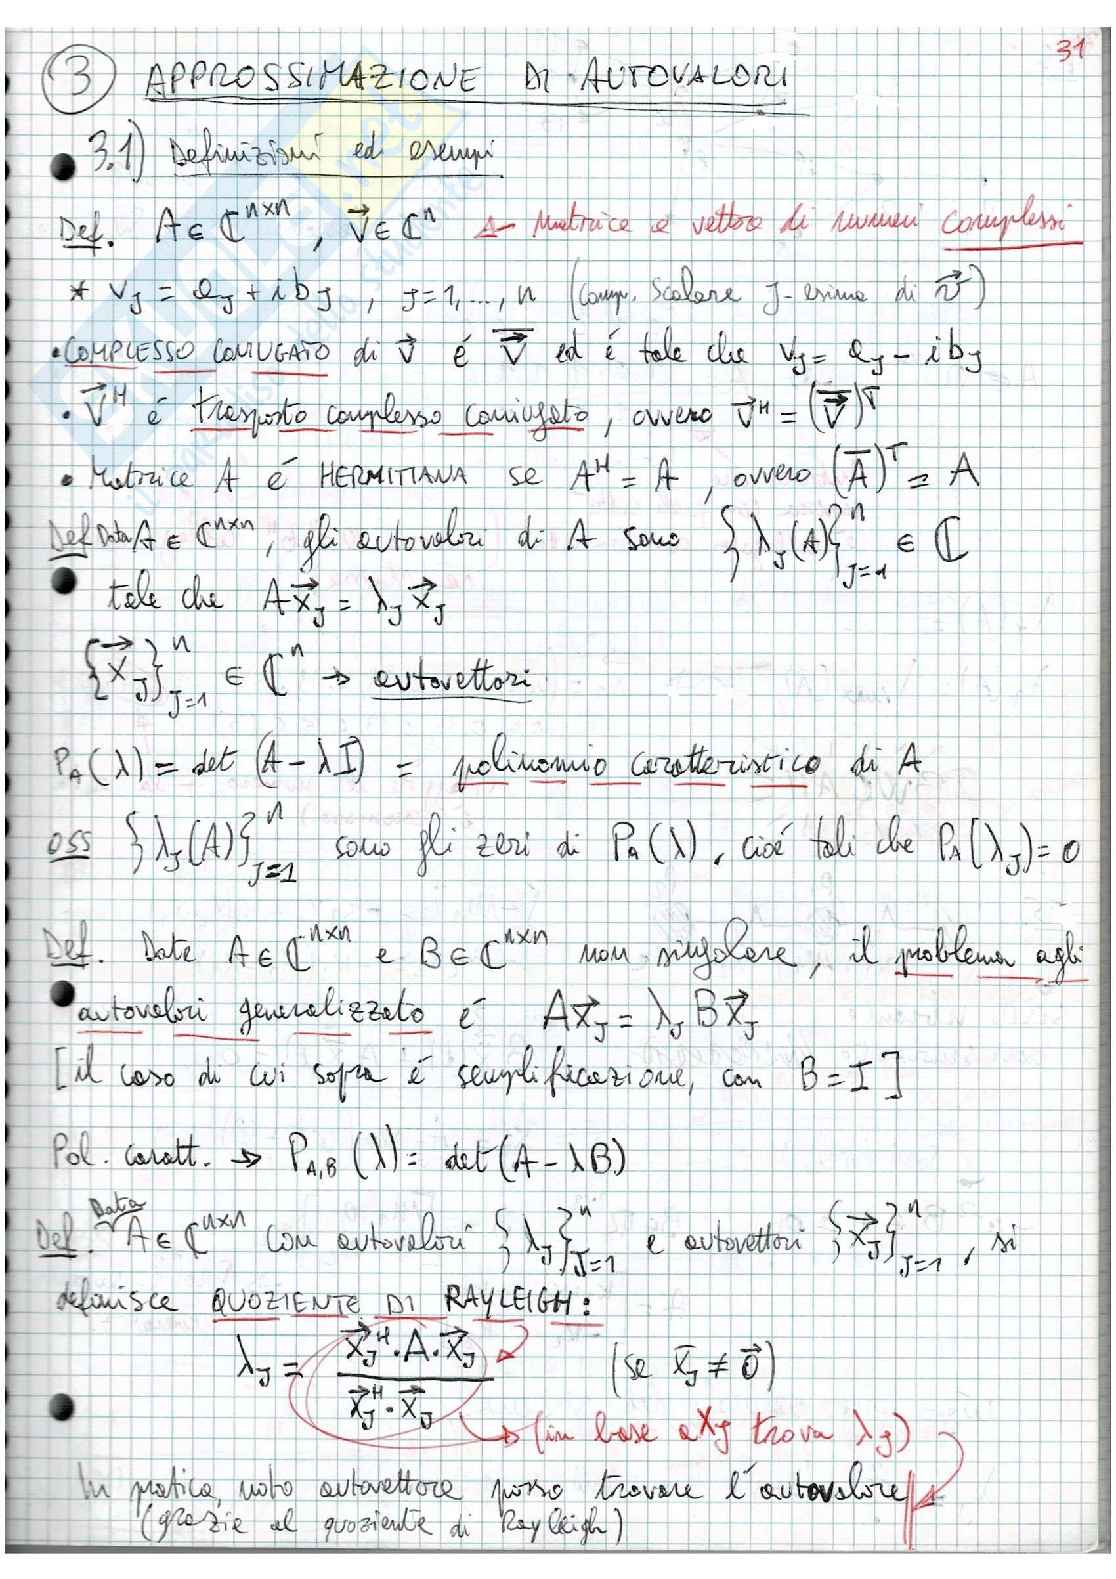 31
③ APPROSSIMAZIONE DI AUTOVALORI
3.1) Definizioni ed esempi
Def. A ∈ ℂ^{n×n}, \vec{v} ∈ ℂ^n ← Matrice e vettore di numeri complessi
* v_J = a_J + i b_J, J=1,...,n (comp. scalare J-esima di \vec{v})
• COMPLESSO CONIUGATO di \vec{v} é \overline{\vec{v}} ed é tale che v_J = a_J - i b_J
• \vec{v}^H é trasposto complesso coniugato, ovvero \vec{v}^H = (\overline{\vec{v}})^T
• Matrice A é HERMITIANA se A^H = A, ovvero (\overline{A})^T = A
Def Data A ∈ ℂ^{n×n}, gli autovalori di A sono {λ_J(A)}_{J=1}^n ∈ ℂ
tale che A\vec{x}_J = λ_J \vec{x}_J
{\vec{x}_J}_{J=1}^n ∈ ℂ^n → autovettori
P_A(λ) = det (A - λI) = polinomio caratteristico di A
OSS {λ_J(A)}_{J=1}^n sono gli zeri di P_A(λ), cioé tali che P_A(λ_J) = 0
Def. Date A ∈ ℂ^{n×n} e B ∈ ℂ^{n×n} non singolare, il problema agli
autovalori generalizzato é A\vec{x}_J = λ_J B\vec{x}_J
[il caso di cui sopra é semplificazione, con B = I]
Pol. caratt. → P_{A,B}(λ) = det(A - λB)
Def. Data A ∈ ℂ^{n×n} con autovalori {λ_J}_{J=1}^n e autovettori {\vec{x}_J}_{J=1}^n, si
definisce QUOZIENTE DI RAYLEIGH:
λ_J = \frac{\vec{x}_J^H · A · \vec{x}_J}{\vec{x}_J^H · \vec{x}_J} (se \vec{x}_J ≠ \vec{0})
→ (in base a x_J trova λ_J)
In pratica, noto autovettore posso trovare l'autovalore
(grazie al quoziente di Rayleigh)